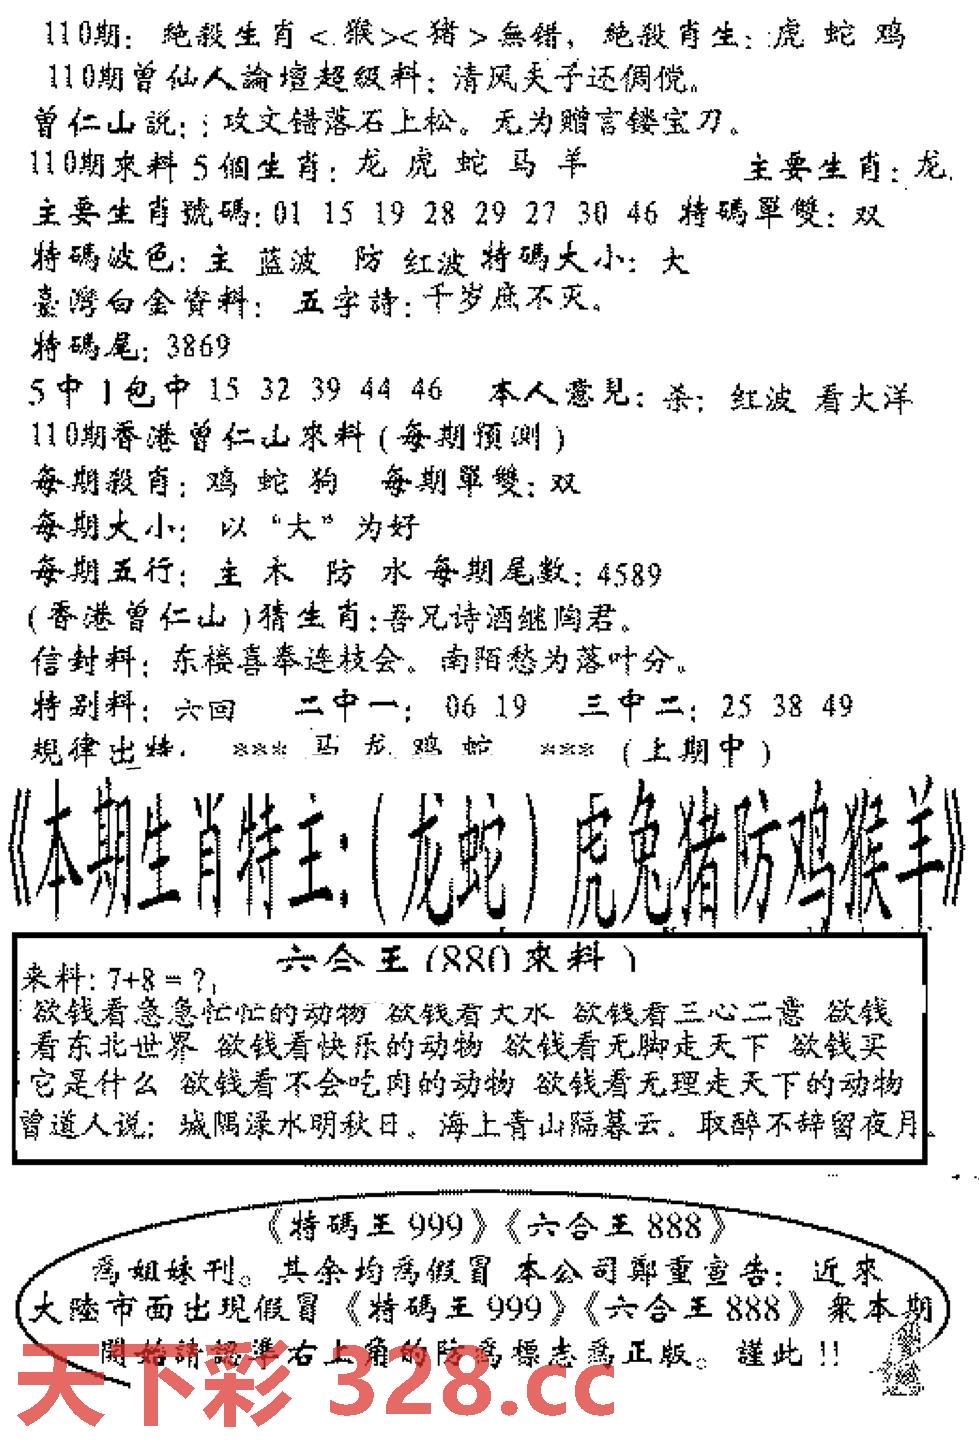 110期: 绝殺生肖<猴><猪>無错, 绝殺肖生: 虎 蛇 鸡
110期曾仙人論壇超級料: 清风夫子还倜傥。
曾仁山説: 攻文错落石上松。无为赠言镂宝刀。
110期來料5個生肖: 龙 虎 蛇 马 羊 主要生肖: 龙
主要生肖號碼: 01 15 19 28 29 27 30 46 特碼單雙: 双
特碼波色: 主 蓝波 防 红波 特碼大小: 大
臺灣白金資料: 五字詩: 千岁庶不灭。
特碼尾: 3869
5中1包中 15 32 39 44 46 本人意見: 杀: 红波 看大洋
110期香港曾仁山來料(每期預測)
每期殺肖: 鸡 蛇 狗 每期單雙: 双
每期大小: 以“大”为好
每期五行: 主 木 防 水 每期尾數: 4589
(香港曾仁山)猜生肖: 吾兄诗酒继陶君。
信封料: 东楼喜奉连枝会。南陌愁为落叶分。
特别料: 六回 二中一: 06 19 三中二: 25 38 49
規律出特: *** 马 龙 鸡 蛇 *** (上期中)
《本期生肖特主:(龙蛇)虎兔猪防鸡猴羊》
六合王(880來料)
来料: 7+8=?
欲钱看急急忙忙的动物 欲钱看大水 欲钱看三心二意 欲钱
看东北世界 欲钱看快乐的动物 欲钱看无脚走天下 欲钱买
它是什么 欲钱看不会吃肉的动物 欲钱看无理走天下的动物
曾道人说: 城隅渌水明秋日。海上青山隔暮云。取醉不辞留夜月。
《特碼王999》《六合王888》
為姐妹刊。其余均為假冒 本公司鄭重宣告: 近來
大陸市面出現假冒《特碼王999》《六合王888》衆本期
開始請認準右上角的防為標志為正版。謹此!!
天下彩 328.cc